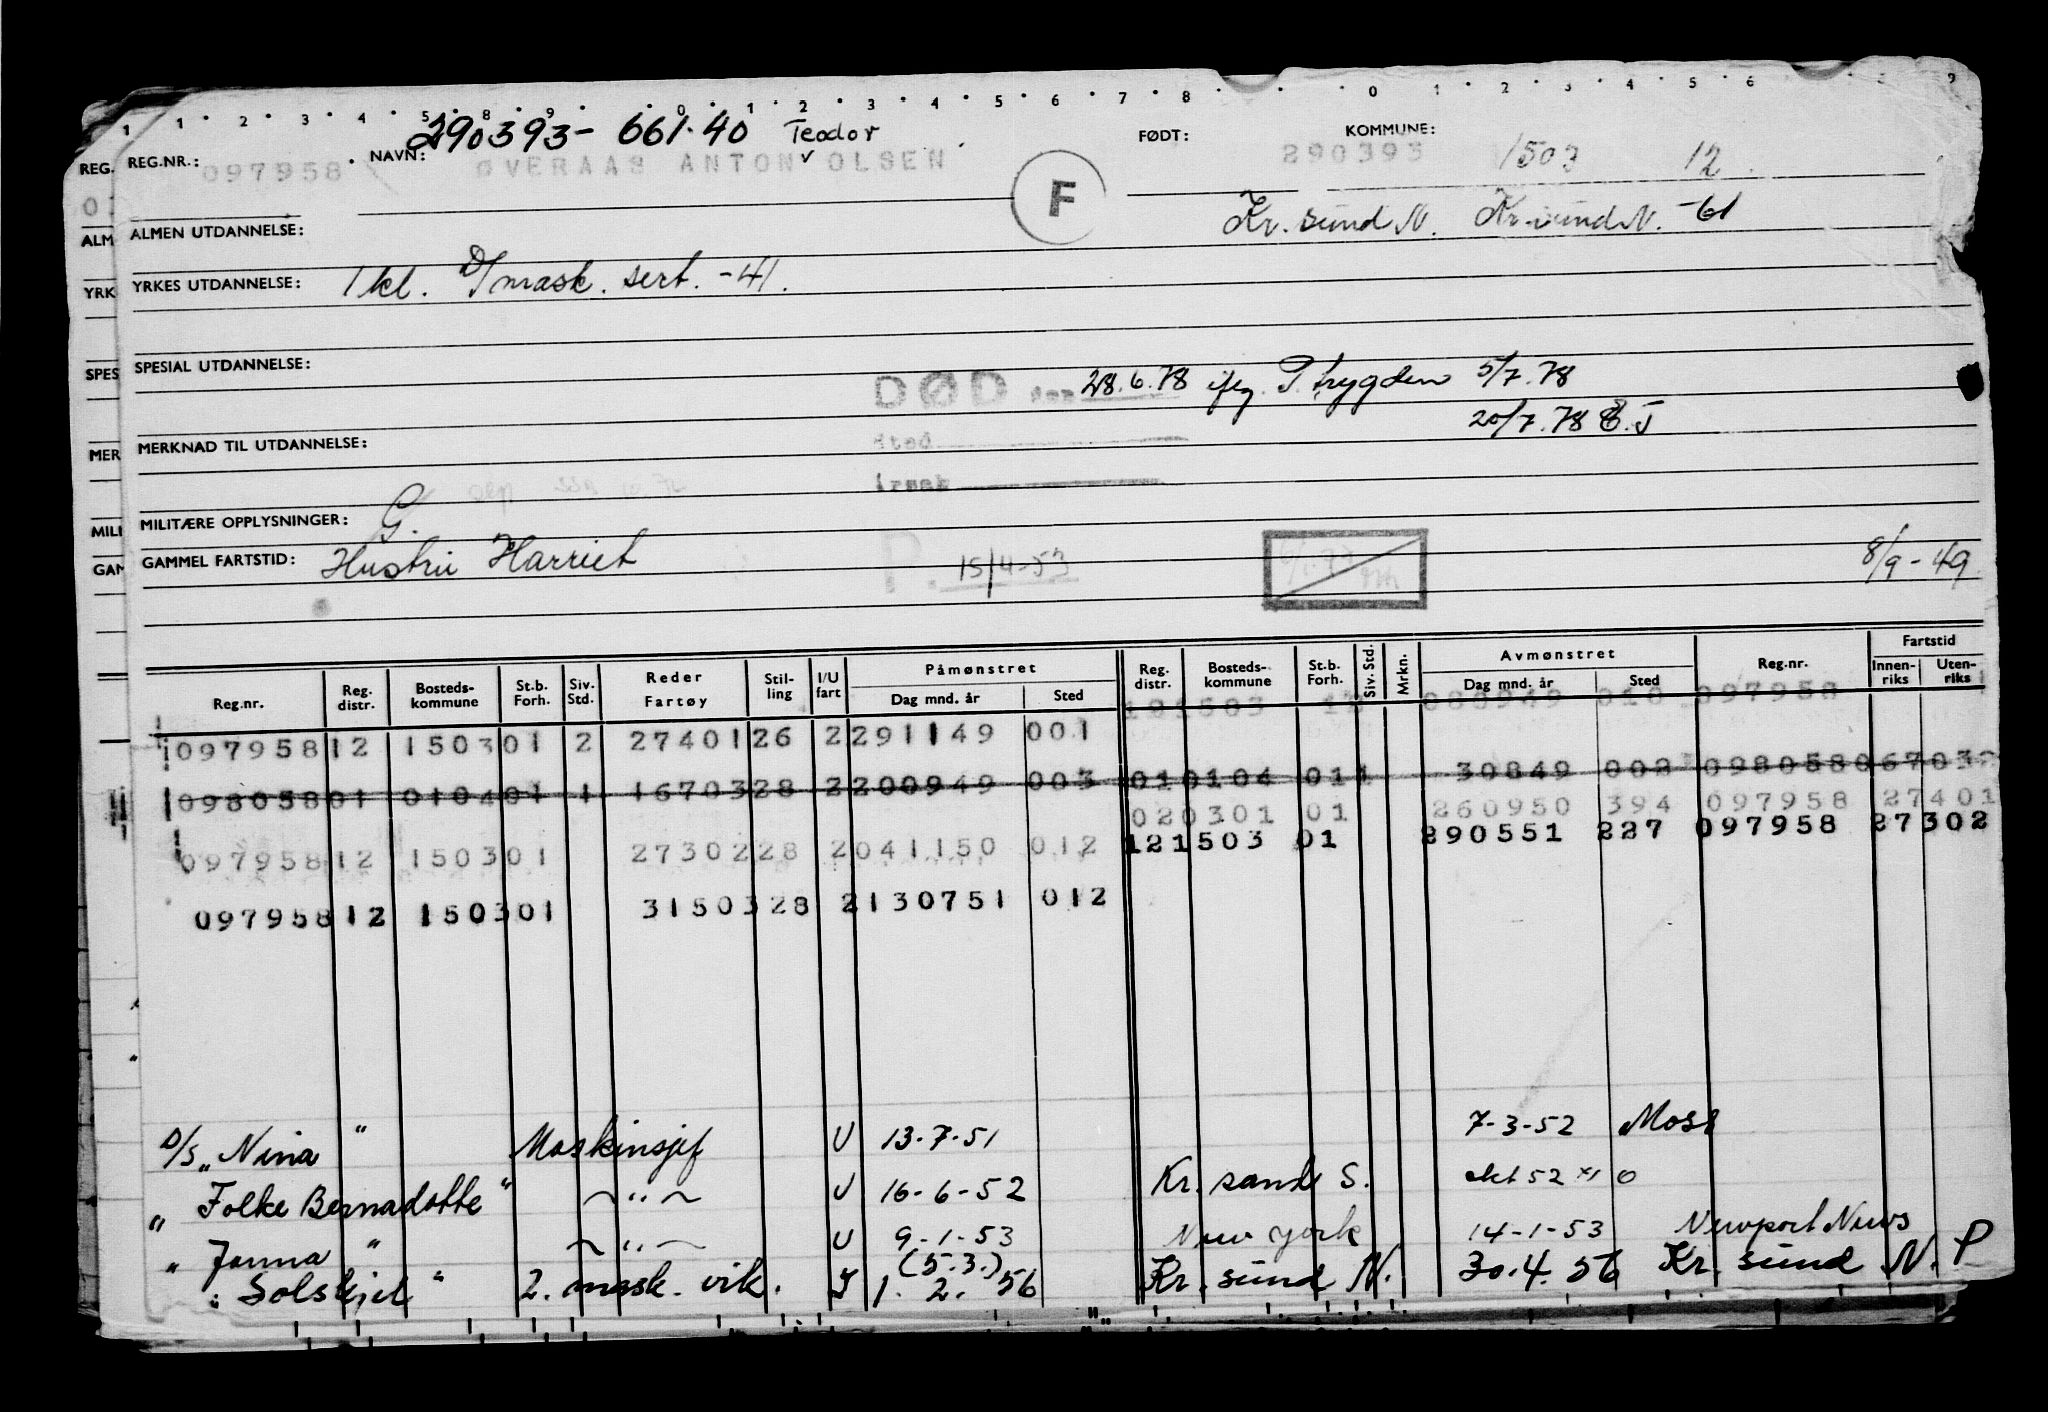 1 1 2 3 4 5 8 9 0 1 2 3 4 5 6 7 8 0 1 2 3 4 5 6 8 9
290393- 661.40 Teodor
REG. REG.NR.: 097958 NAVN: ØVERAAS ANTON ✓ OLSEN FØDT: 290393 KOMMUNE: 1503 12
F
Kr. sund N. Kr. sund N. -61
ALM ALMEN UTDANNELSE:
YRK YRKES UTDANNELSE: 1 kl. D/mask. sert. -41.
SPES SPESIAL UTDANNELSE:
DØD den 28.6.78 ifg. P. trygden 5/7.78
sted 20/7.78
MER MERKNAD TIL UTDANNELSE:
årsak
MILI MILITÆRE OPPLYSNINGER: G.
GAM GAMMEL FARTSTID: Hustru Harriet P. 15/4-53 8/9-49
Reg.nr. Reg. distr. Bosteds- kommune St.b. Forh. Siv. Std. Reder Fartøy Stil- ling I/U fart Påmønstret Dag mnd. år Sted Reg. distr. Bosteds- kommune St.b. Forh. Siv. Std. Mrkn. Avmønstret Dag mnd. år Sted Reg.nr. Fartstid Innen- riks Uten- riks
097958 12 1503 01 2 27401 26 2 291149 001
098058 01 0104 01 1 16703 28 2 200949 003 01 0104 01 1 30849 098058 067032
02 0301 01 260950 394 097958 27401
097958 12 1503 01 27302 28 2 041150 012 12 1503 01 290551 227 097958 27302
097958 12 1503 01 31503 28 2 130751 012
D/S "Nina" Maskinsjef U 13-7-51 7-3-52 Moss
" Folke Bernadotte" ~"~ U 16-6-52 Kr. sand S. okt 52
" Janna " ~"~ U 9-1-53 New York 14-1-53 Newport News
(5.3.)
" Solskjel " 2. mask. vik. I 1. 2. 56 Kr. sund N. 30.4.56 Kr. sund N. P